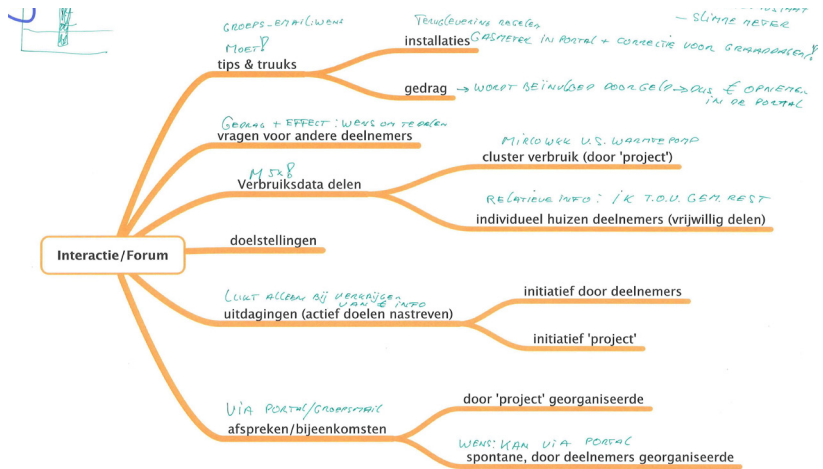 - SLIMME METER
GROEPS-EMAIL: WENS
MOET!
tips & truuks
TERUGLEVERING REGELEN
installaties
GASMETER IN PORTAL + CORRECTIE VOOR GRAADDAGEN!
gedrag
→ WORDT BEÏNVLOED DOOR GELD → DUS € OPNEMEN
IN DE PORTAL
GEDRAG + EFFECT: WENS OM TE DELEN
vragen voor andere deelnemers
MICROWKK V.S. WARMTEPOMP
cluster verbruik (door 'project')
Verbruiksdata delen
RELATIEVE INFO: IK T.O.V. GEM. REST
individueel huizen deelnemers (vrijwillig delen)
doelstellingen
Interactie/Forum
LUKT ALLEEN BIJ VERKRIJGEN
VAN € INFO
uitdagingen (actief doelen nastreven)
initiatief door deelnemers
initiatief 'project'
VIA PORTAL/GROEPSMAIL
afspreken/bijeenkomsten
door 'project' georganiseerde
WENS: KAN VIA PORTAL
spontane, door deelnemers georganiseerde